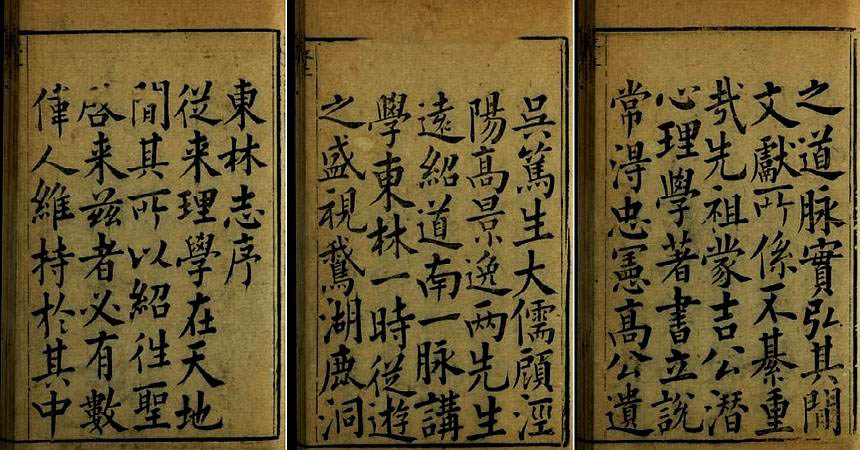 東林志序
從来理學在天地
間其所以紹徃聖
啓来兹者必有數
偉人維持於其中
吳篤生大儒顧涇
陽髙景逸两先生
遠紹道南一脉講
學東林一時從遊
之盛視鵞湖鹿洞
之道脉實弘其間
文獻所係不綦重
㦲先祖蒙吉公潜
心理學著書立說
常淂忠憲髙公遺